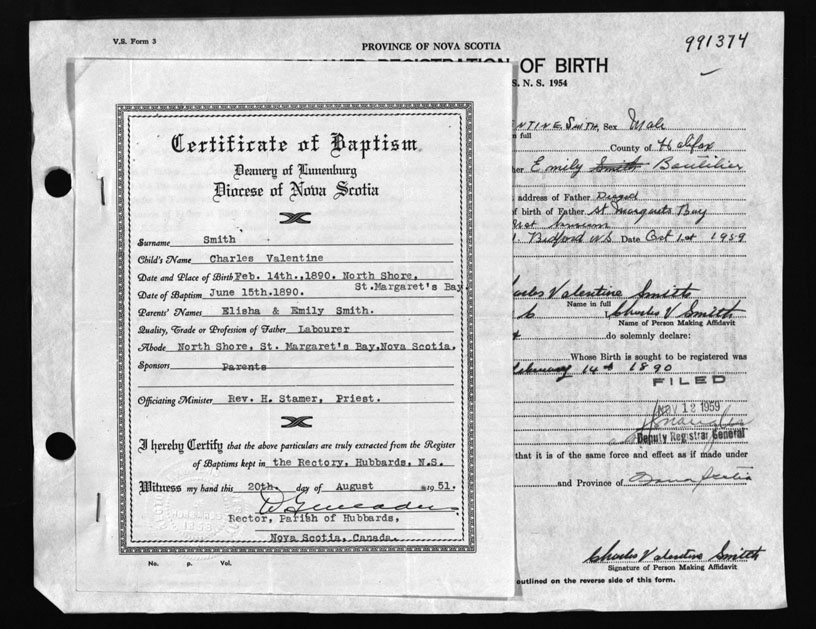 V.S. Form 3
PROVINCE OF NOVA SCOTIA
991374
OF BIRTH
S. N. S. 1954
Certificate of Baptism
Deanery of Lunenburg
Diocese of Nova Scotia
Surname Smith
Child's Name Charles Valentine
Date and Place of Birth Feb. 14th.,1890. North Shore,
St.Margaret's Bay
Date of Baptism June 15th.1890.
Parents' Names Elisha & Emily Smith.
Quality, Trade or Profession of Father Labourer
Abode North Shore, St. Margaret's Bay,Nova Scotia.
Sponsors Parents
Officiating Minister Rev. H. Stamer, Priest.
I hereby Certify that the above particulars are truly extracted from the Register
of Baptisms kept in the Rectory, Hubbards, N.S.
Witness my hand this 20th. day of August 1951.
Rector, Parish of Hubbards,
Nova Scotia, Canada.
No. p. Vol.
NTINE SMITH Sex Male
n full
County of Halifax
her Emily Smith Boutilier
address of Father
of birth of Father St Margarets Bay
Bedford NS Date Oct 1st 1959
Charles Valentine Smith
Name in full
Charles V Smith
Name of Person Making Affidavit
do solemnly declare:
Whose Birth is sought to be registered was
February 14th 1890
FILED
NOV 12 1959
Deputy Registrar General
that it is of the same force and effect as if made under
and Province of Nova Scotia
Charles Valentine Smith
Signature of Person Making Affidavit
outlined on the reverse side of this form.